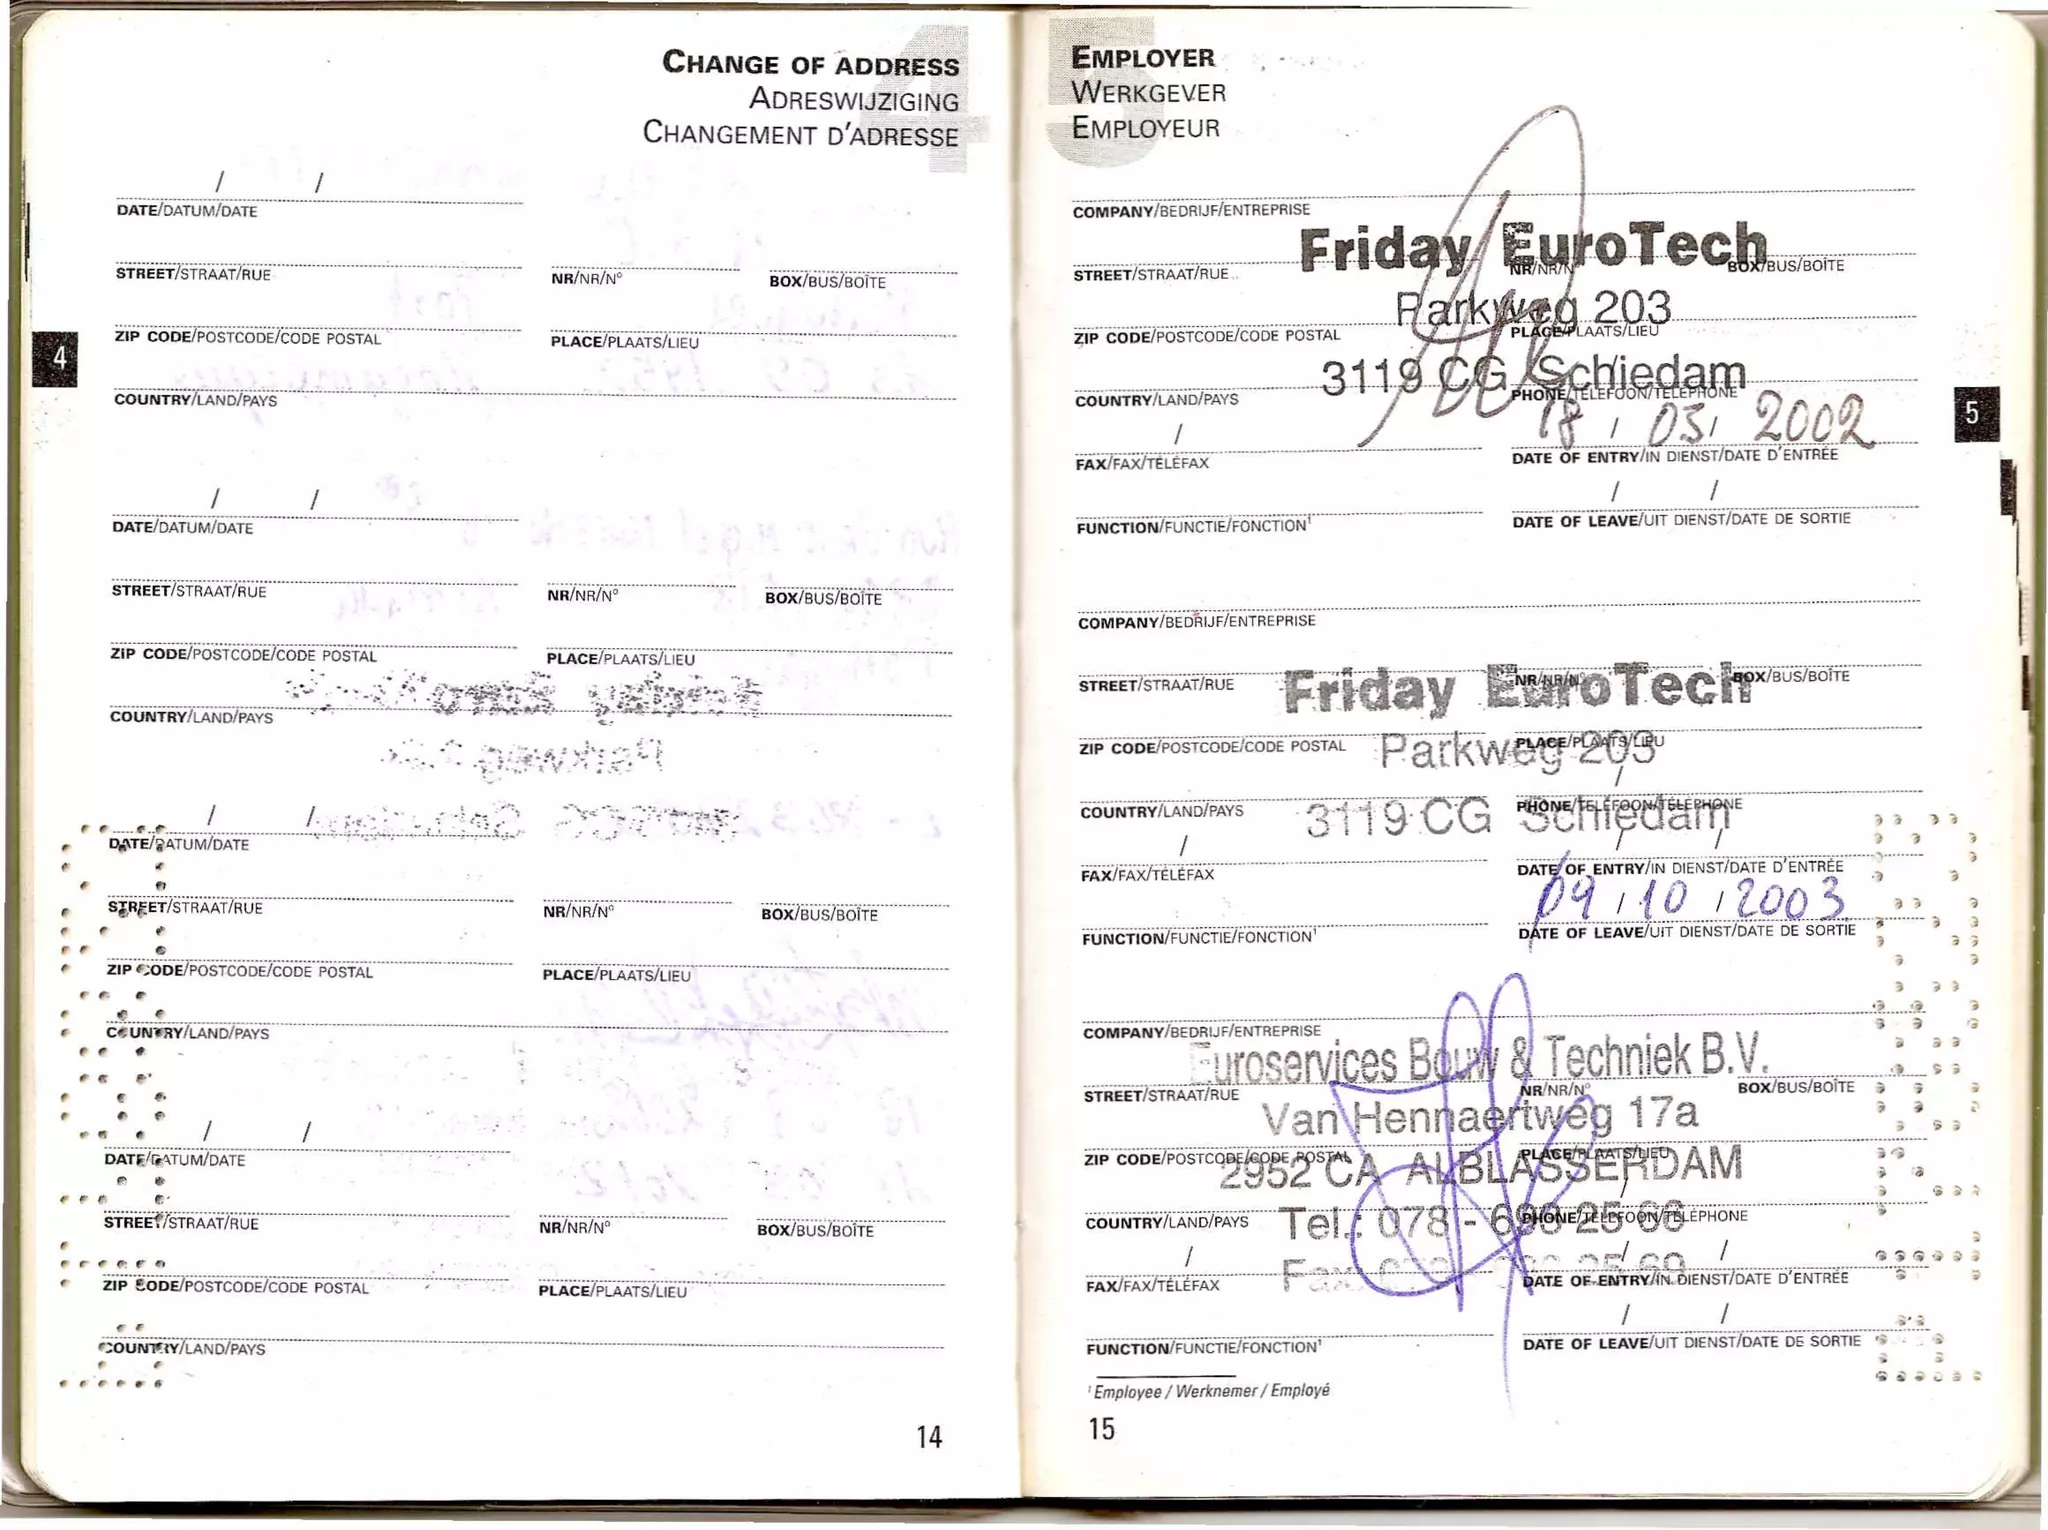 CHANGE OF ADDRESS
ADRESWIJZIGING
CHANGEMENT D'ADRESSE
4
/ /
DATE/DATUM/DATE
STREET/STRAAT/RUE NR/NR/N° BOX/BUS/BOÎTE
ZIP CODE/POSTCODE/CODE POSTAL PLACE/PLAATS/LIEU
4
COUNTRY/LAND/PAYS
/ /
DATE/DATUM/DATE
STREET/STRAAT/RUE NR/NR/N° BOX/BUS/BOÎTE
ZIP CODE/POSTCODE/CODE POSTAL PLACE/PLAATS/LIEU
COUNTRY/LAND/PAYS
/ /
DATE/DATUM/DATE
STREET/STRAAT/RUE NR/NR/N° BOX/BUS/BOÎTE
ZIP CODE/POSTCODE/CODE POSTAL PLACE/PLAATS/LIEU
COUNTRY/LAND/PAYS
/ /
DATE/DATUM/DATE
STREET/STRAAT/RUE NR/NR/N° BOX/BUS/BOÎTE
ZIP CODE/POSTCODE/CODE POSTAL PLACE/PLAATS/LIEU
COUNTRY/LAND/PAYS
14
5
EMPLOYER
WERKGEVER
EMPLOYEUR
COMPANY/BEDRIJF/ENTREPRISE
Friday EuroTech
STREET/STRAAT/RUE NR/NR/N° BOX/BUS/BOÎTE
Parkweg 203
ZIP CODE/POSTCODE/CODE POSTAL PLACE/PLAATS/LIEU
3119 CG Schiedam
COUNTRY/LAND/PAYS PHONE/TELEFOON/TÉLÉPHONE
5
/ 18 / 03 / 2002
FAX/FAX/TÉLÉFAX DATE OF ENTRY/IN DIENST/DATE D'ENTRÉE
/ /
FUNCTION/FUNCTIE/FONCTION¹ DATE OF LEAVE/UIT DIENST/DATE DE SORTIE
COMPANY/BEDRIJF/ENTREPRISE
Friday EuroTech
STREET/STRAAT/RUE NR/NR/N° BOX/BUS/BOÎTE
Parkweg 203
ZIP CODE/POSTCODE/CODE POSTAL PLACE/PLAATS/LIEU
3119 CG Schiedam
COUNTRY/LAND/PAYS PHONE/TELEFOON/TÉLÉPHONE
/ / /
FAX/FAX/TÉLÉFAX DATE OF ENTRY/IN DIENST/DATE D'ENTRÉE
09 / 10 / 2003
FUNCTION/FUNCTIE/FONCTION¹ DATE OF LEAVE/UIT DIENST/DATE DE SORTIE
COMPANY/BEDRIJF/ENTREPRISE
Euroservices Bouw & Techniek B.V.
STREET/STRAAT/RUE NR/NR/N° BOX/BUS/BOÎTE
Van Hennaertweg 17a
ZIP CODE/POSTCODE/CODE POSTAL PLACE/PLAATS/LIEU
2952 CA ALBLASSERDAM
COUNTRY/LAND/PAYS PHONE/TELEFOON/TÉLÉPHONE
Tel.: 078 -
/ / /
FAX/FAX/TÉLÉFAX DATE OF ENTRY/IN DIENST/DATE D'ENTRÉE
Fax:
/ /
FUNCTION/FUNCTIE/FONCTION¹ DATE OF LEAVE/UIT DIENST/DATE DE SORTIE
¹ Employee / Werknemer / Employé
15